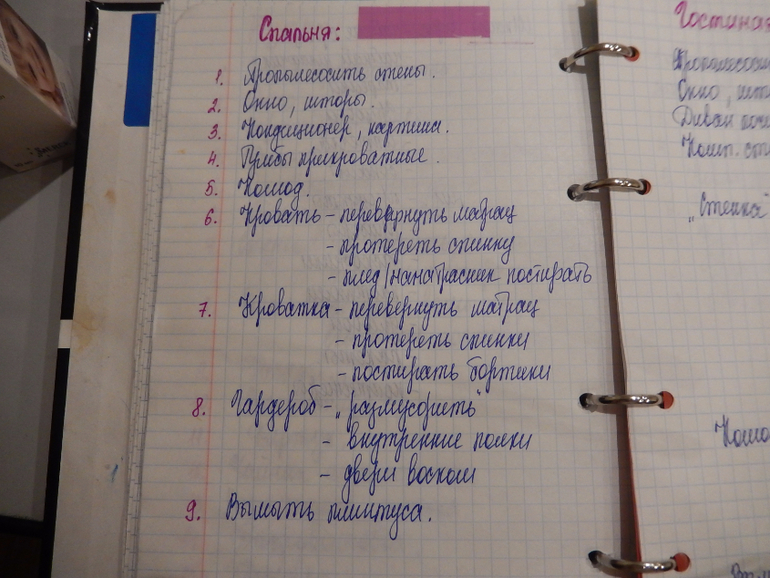 Спальня:
1. Пропылесосить стены.
2. Окно, шторы.
3. Кондиционер, картина.
4. Тумбы прикроватные.
5. Комод.
6. Кровать - перевернуть матрац
- протереть спинку
- плед/наматрасник постирать
7. Кроватка - перевернуть матрац
- протереть спинки
- постирать бортики
8. Гардероб - „размусорить"
- внутренние полки
- двери воском
9. Вымыть плинтуса.
Гостиная
Пропылесоси
Окно, што
Диван
Комп. ст
„Стенка"
Комо